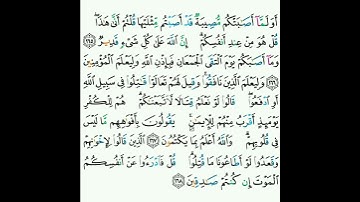 أَوَلَمَّآ أَصَٰبَتۡكُم مُّصِيبَةٞ قَدۡ أَصَبۡتُم مِّثۡلَيۡهَا قُلۡتُمۡ أَنَّىٰ هَٰذَاۖ
قُلۡ هُوَ مِنۡ عِندِ أَنفُسِكُمۡۗ إِنَّ ٱللَّهَ عَلَىٰ كُلِّ شَيۡءٖ قَدِيرٞ ١٦٥
وَمَآ أَصَٰبَكُمۡ يَوۡمَ ٱلۡتَقَى ٱلۡجَمۡعَانِ فَبِإِذۡنِ ٱللَّهِ وَلِيَعۡلَمَ ٱلۡمُؤۡمِنِينَ
١٦٦ وَلِيَعۡلَمَ ٱلَّذِينَ نَافَقُواْۚ وَقِيلَ لَهُمۡ تَعَالَوۡاْ قَٰتِلُواْ فِي سَبِيلِ ٱللَّهِ
أَوِ ٱدۡفَعُواْۖ قَالُواْ لَوۡ نَعۡلَمُ قِتَالٗا لَّٱتَّبَعۡنَٰكُمۡۗ هُمۡ لِلۡكُفۡرِ
يَوۡمَئِذٍ أَقۡرَبُ مِنۡهُمۡ لِلۡإِيمَٰنِۚ يَقُولُونَ بِأَفۡوَٰهِهِم مَّا لَيۡسَ
فِي قُلُوبِهِمۡۚ وَٱللَّهُ أَعۡلَمُ بِمَا يَكۡتُمُونَ ١٦٧ ٱلَّذِينَ قَالُواْ لِإِخۡوَٰنِهِمۡ
وَقَعَدُواْ لَوۡ أَطَاعُونَا مَا قُتِلُواْۗ قُلۡ فَٱدۡرَءُواْ عَنۡ أَنفُسِكُمُ
ٱلۡمَوۡتَ إِن كُنتُمۡ صَٰدِقِينَ ١٦٨